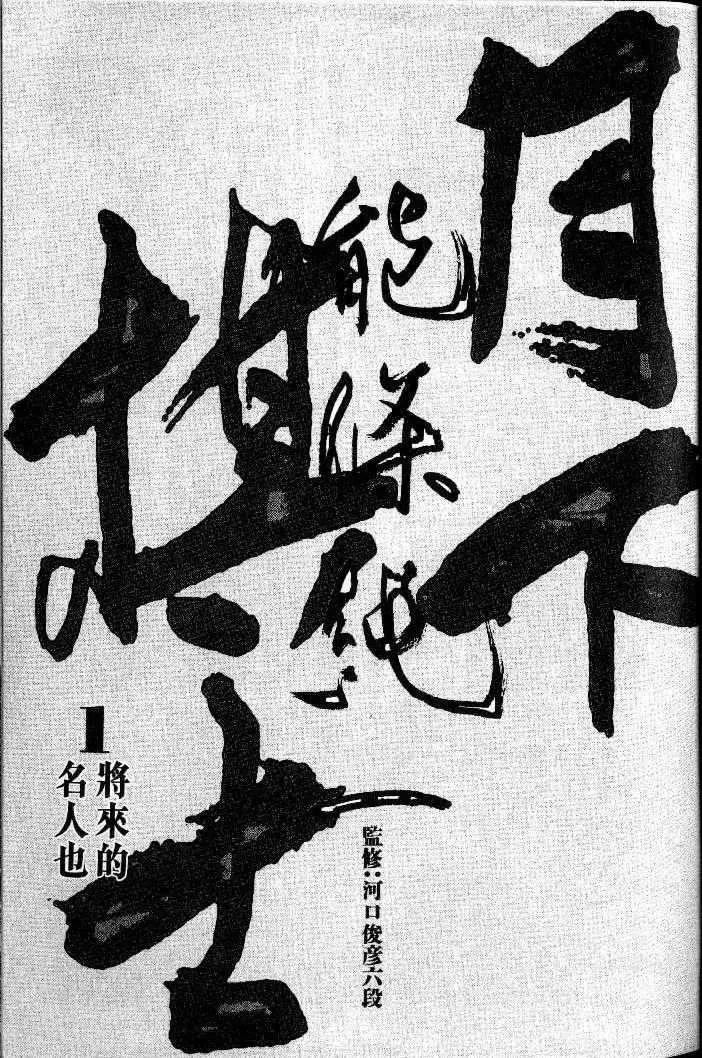 月下
棋士
能條純一
1
將來的
名人也
監修:河口俊彦六段